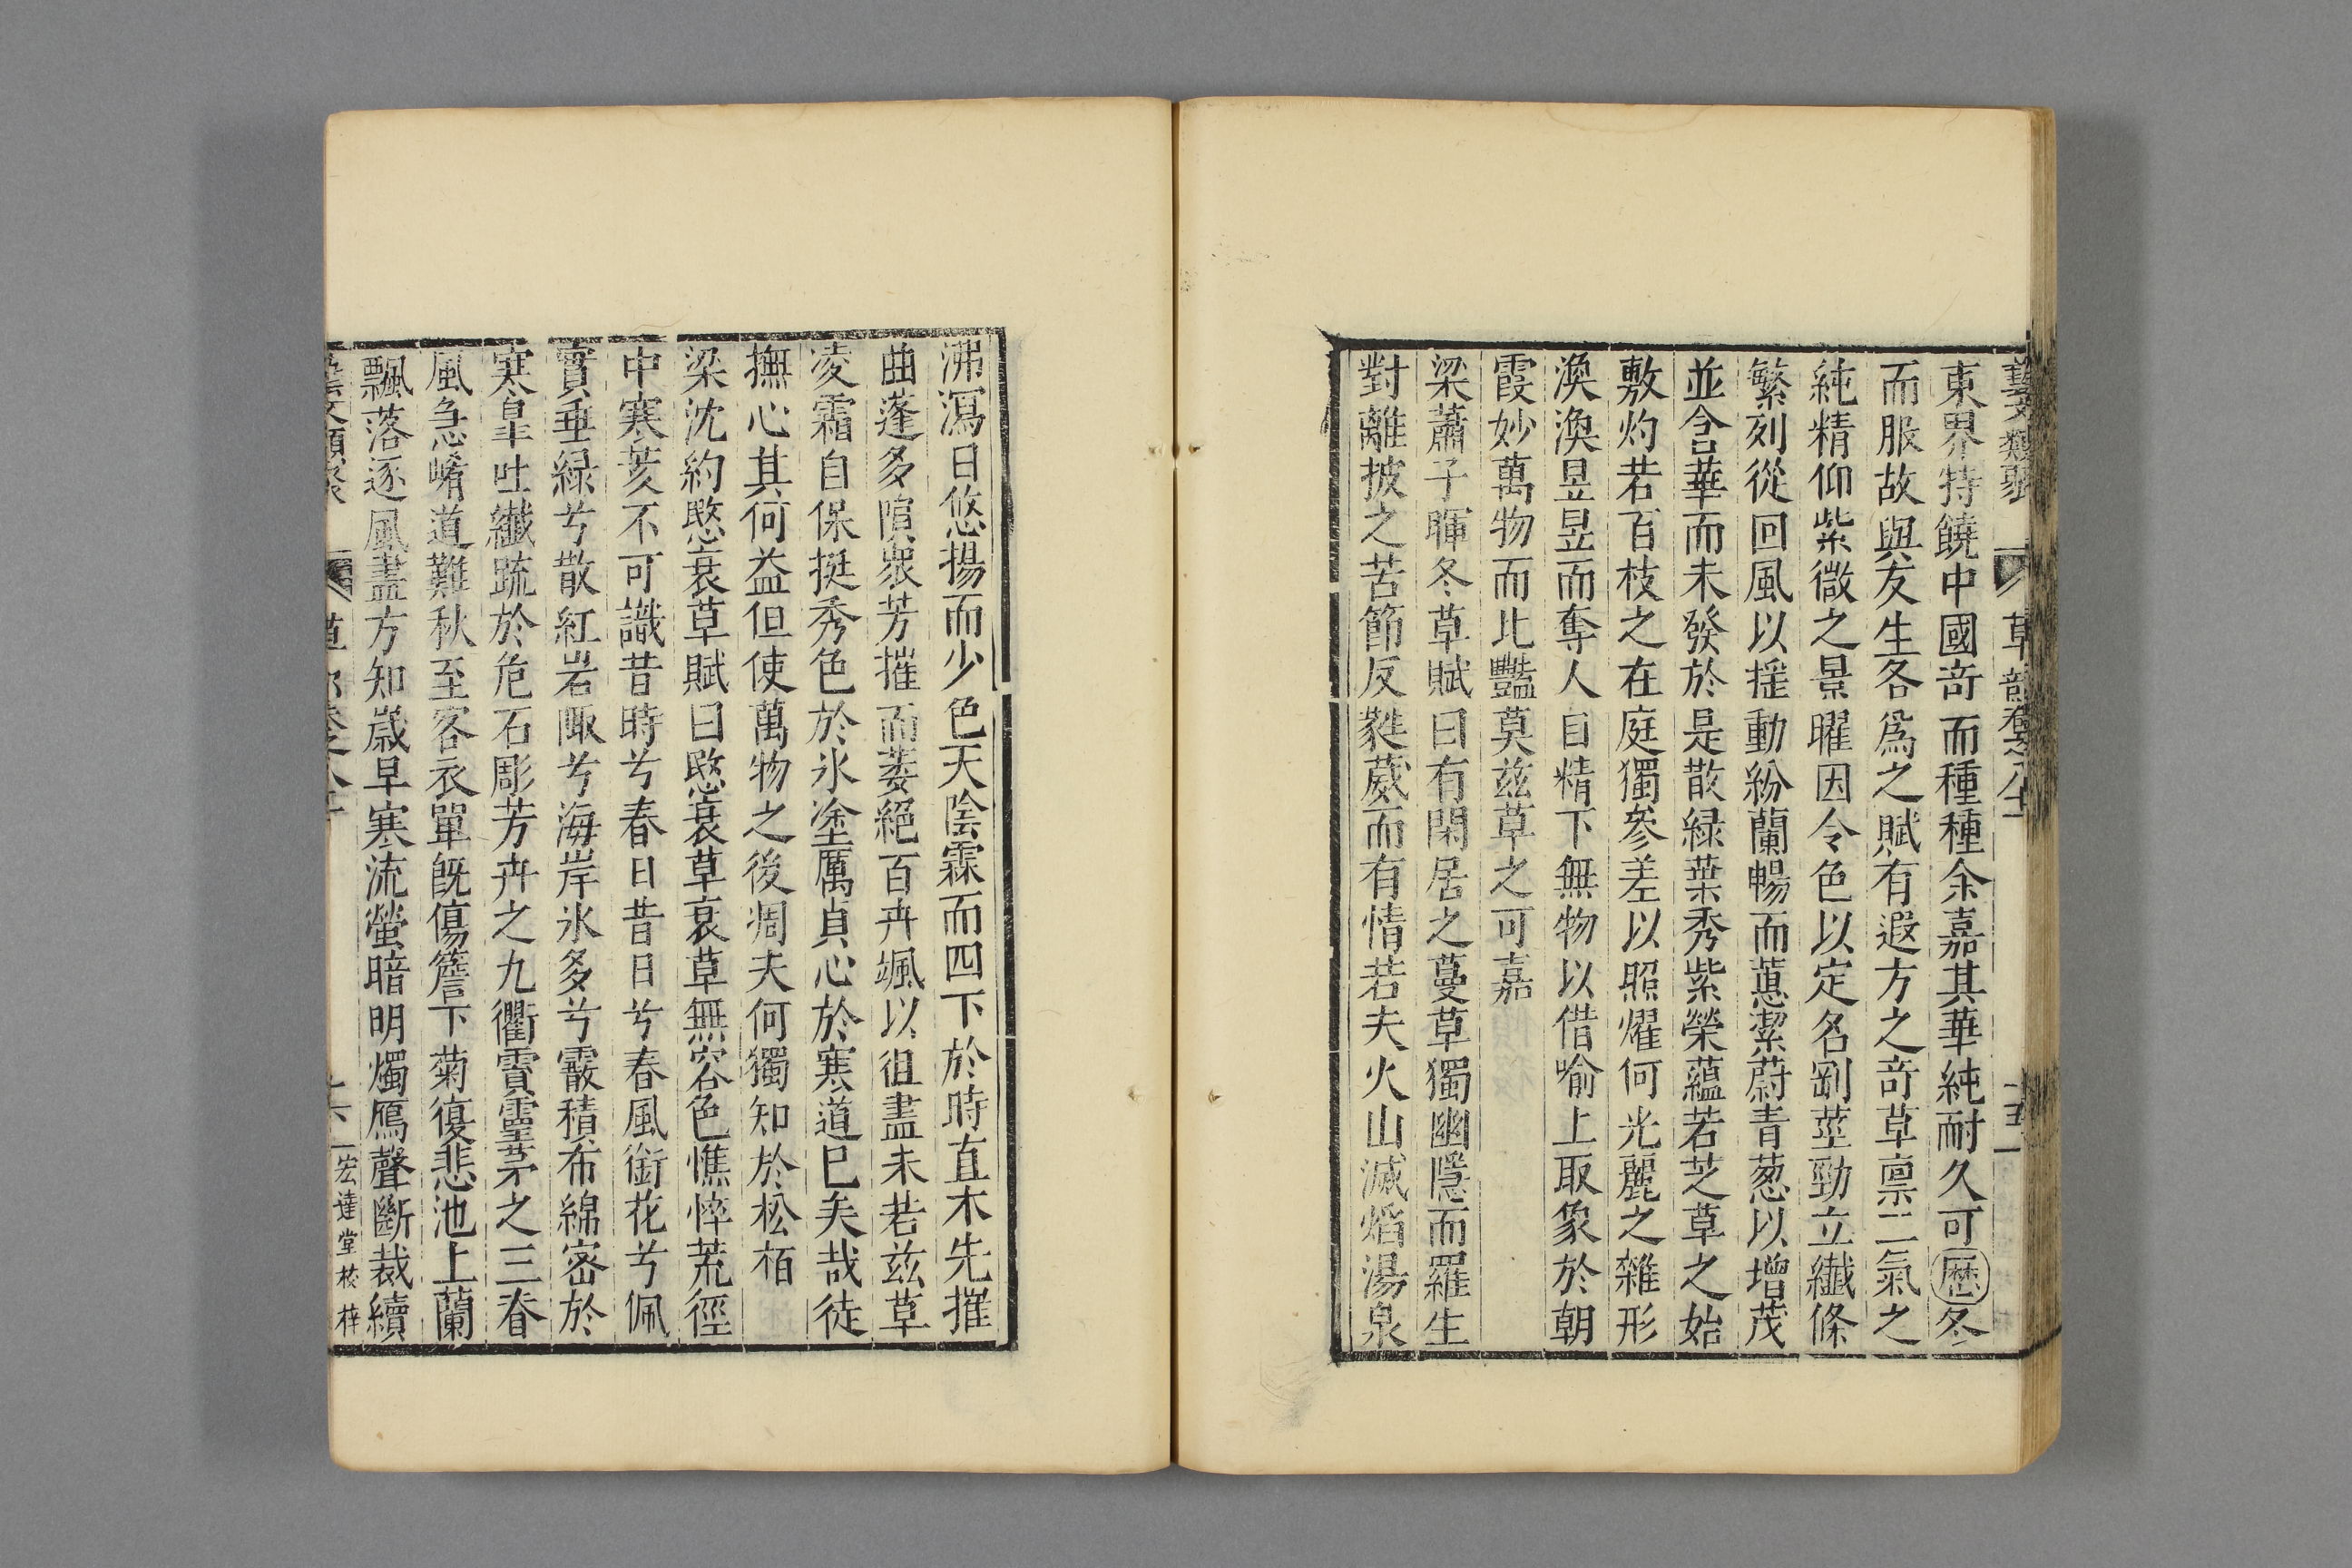 藝文類聚 草部卷之八十一 十五
東界特饒中國奇而種種余嘉其華純耐久可歷冬
而服故與友生各為之賦有遐方之奇草禀二氣之
純精仰紫微之景曜因令色以定名剛莖勁立纎條
繁列從回風以揺動紛蘭暢而蕙潔蔚青葱以增茂
並含華而未發於是散綠葉秀紫榮蘊若芝草之始
敷灼若百枝之在庭獨參差以照燿何光麗之雜形
渙渙昱昱而奪人目精下無物以借喻上取象於朝
霞妙萬物而比豔莫兹草之可嘉
梁蕭子暉冬草賦曰有閑居之蔓草獨幽隱而羅生
對離披之苦節反蕤葳而有情若夫火山滅熖湯泉
沸瀉日悠揚而少色天陰霖而四下於時直木先摧
曲蓬多隕衆芳摧而萎絕百卉颯以徂盡未若兹草
凌霜自保挺秀色於氷塗厲貞心於寒道已矣哉徒
撫心其何益但使萬物之後凋夫何獨知於松栢
梁沈約愍衰草賦曰愍衰草衰草無容色憔悴荒徑
中寒荄不可識昔時兮春日昔日兮春風銜花兮佩
實垂緑兮散紅岩陬兮海岸氷多兮霰積布綿密於
寒皐吐纎疏於危石彫芳卉之九衢霣靈茅之三脊
風急崤道難秋至客衣單旣傷簷下菊復悲池上蘭
飄落逐風盡方知歲早寒流螢暗明燭鴈聲斷裁續
藝文類聚 草部卷之八十一 十六 宏達堂校梓